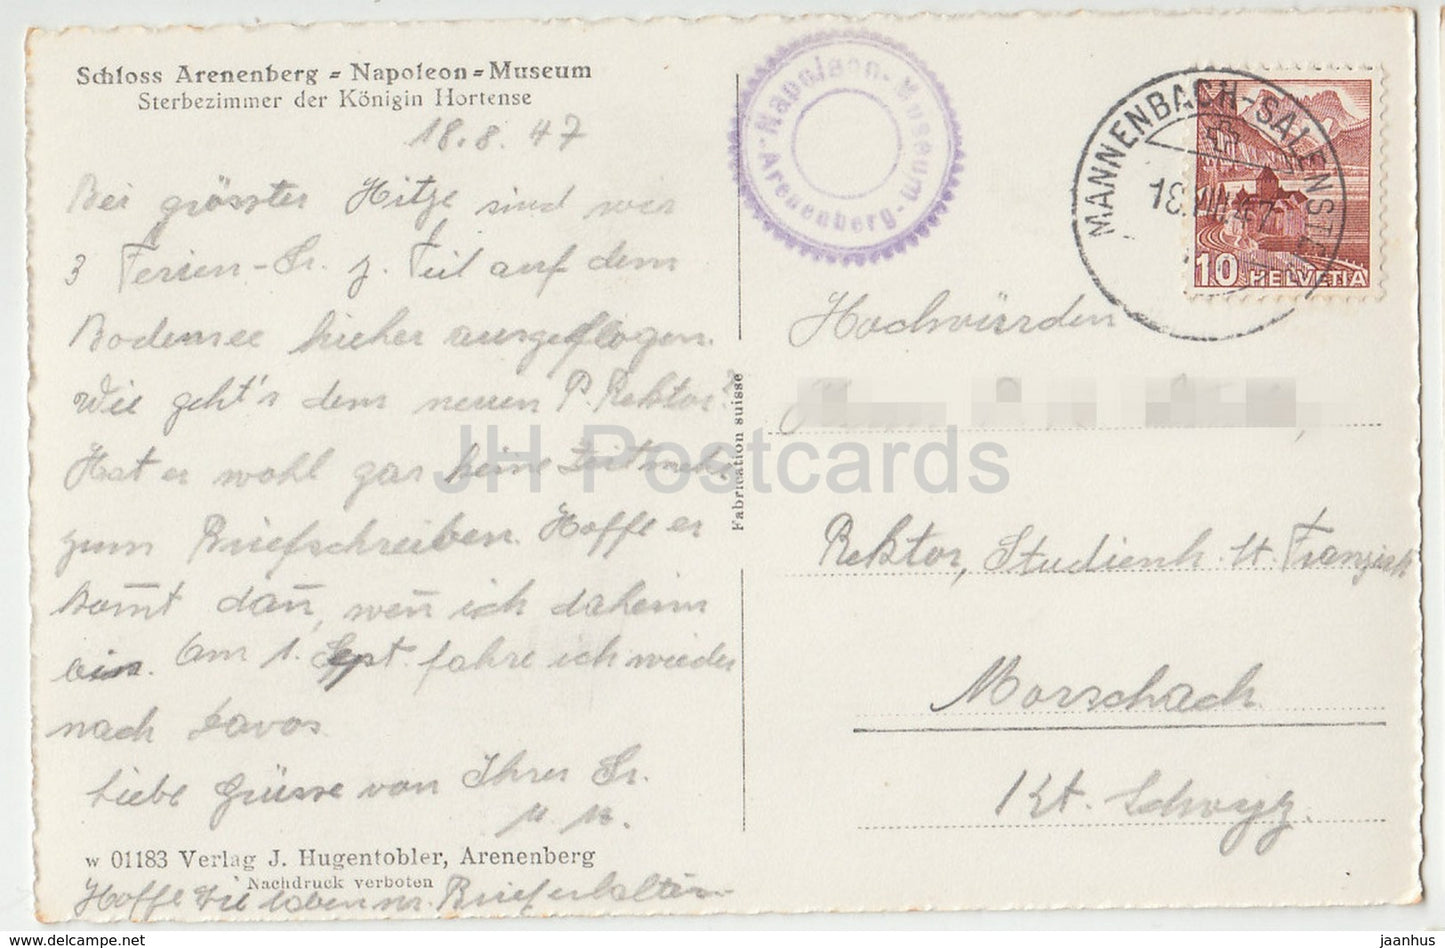 Schloss Arenenberg = Napoleon = Museum
Sterbezimmer der Königin Hortense
18.8.47
Bei grösster Hitze sind wir
3 Ferien-Sr. z. Teil auf dem
Bodensee hieher ausgeflogen.
Wie geht's dem neuen P. Rektor?
Hat er wohl gar keine Zeit mehr
zum Briefschreiben. Hoffe er
kom̄t dan̄, wen̄ ich daheim
bin. Am 1. Sept. fahre ich wieder
nach Davos.
Liebe Grüsse von Ihrer Sr.
M. M.
w 01183 Verlag J. Hugentobler, Arenenberg
Nachdruck verboten
Hoffe Sie haben m. Brief erhalten
Fabrication suisse
-Napoleon-Museum-
Arenenberg
MANNENBACH-SALENSTEIN
18.VIII.47
10 HELVETIA
Hochwürden
Rektor, Studienh. St. Franzisk
Morschach
Kt. Schwyz.
JH Postcards
ehu.delcampe.net
jaanhus